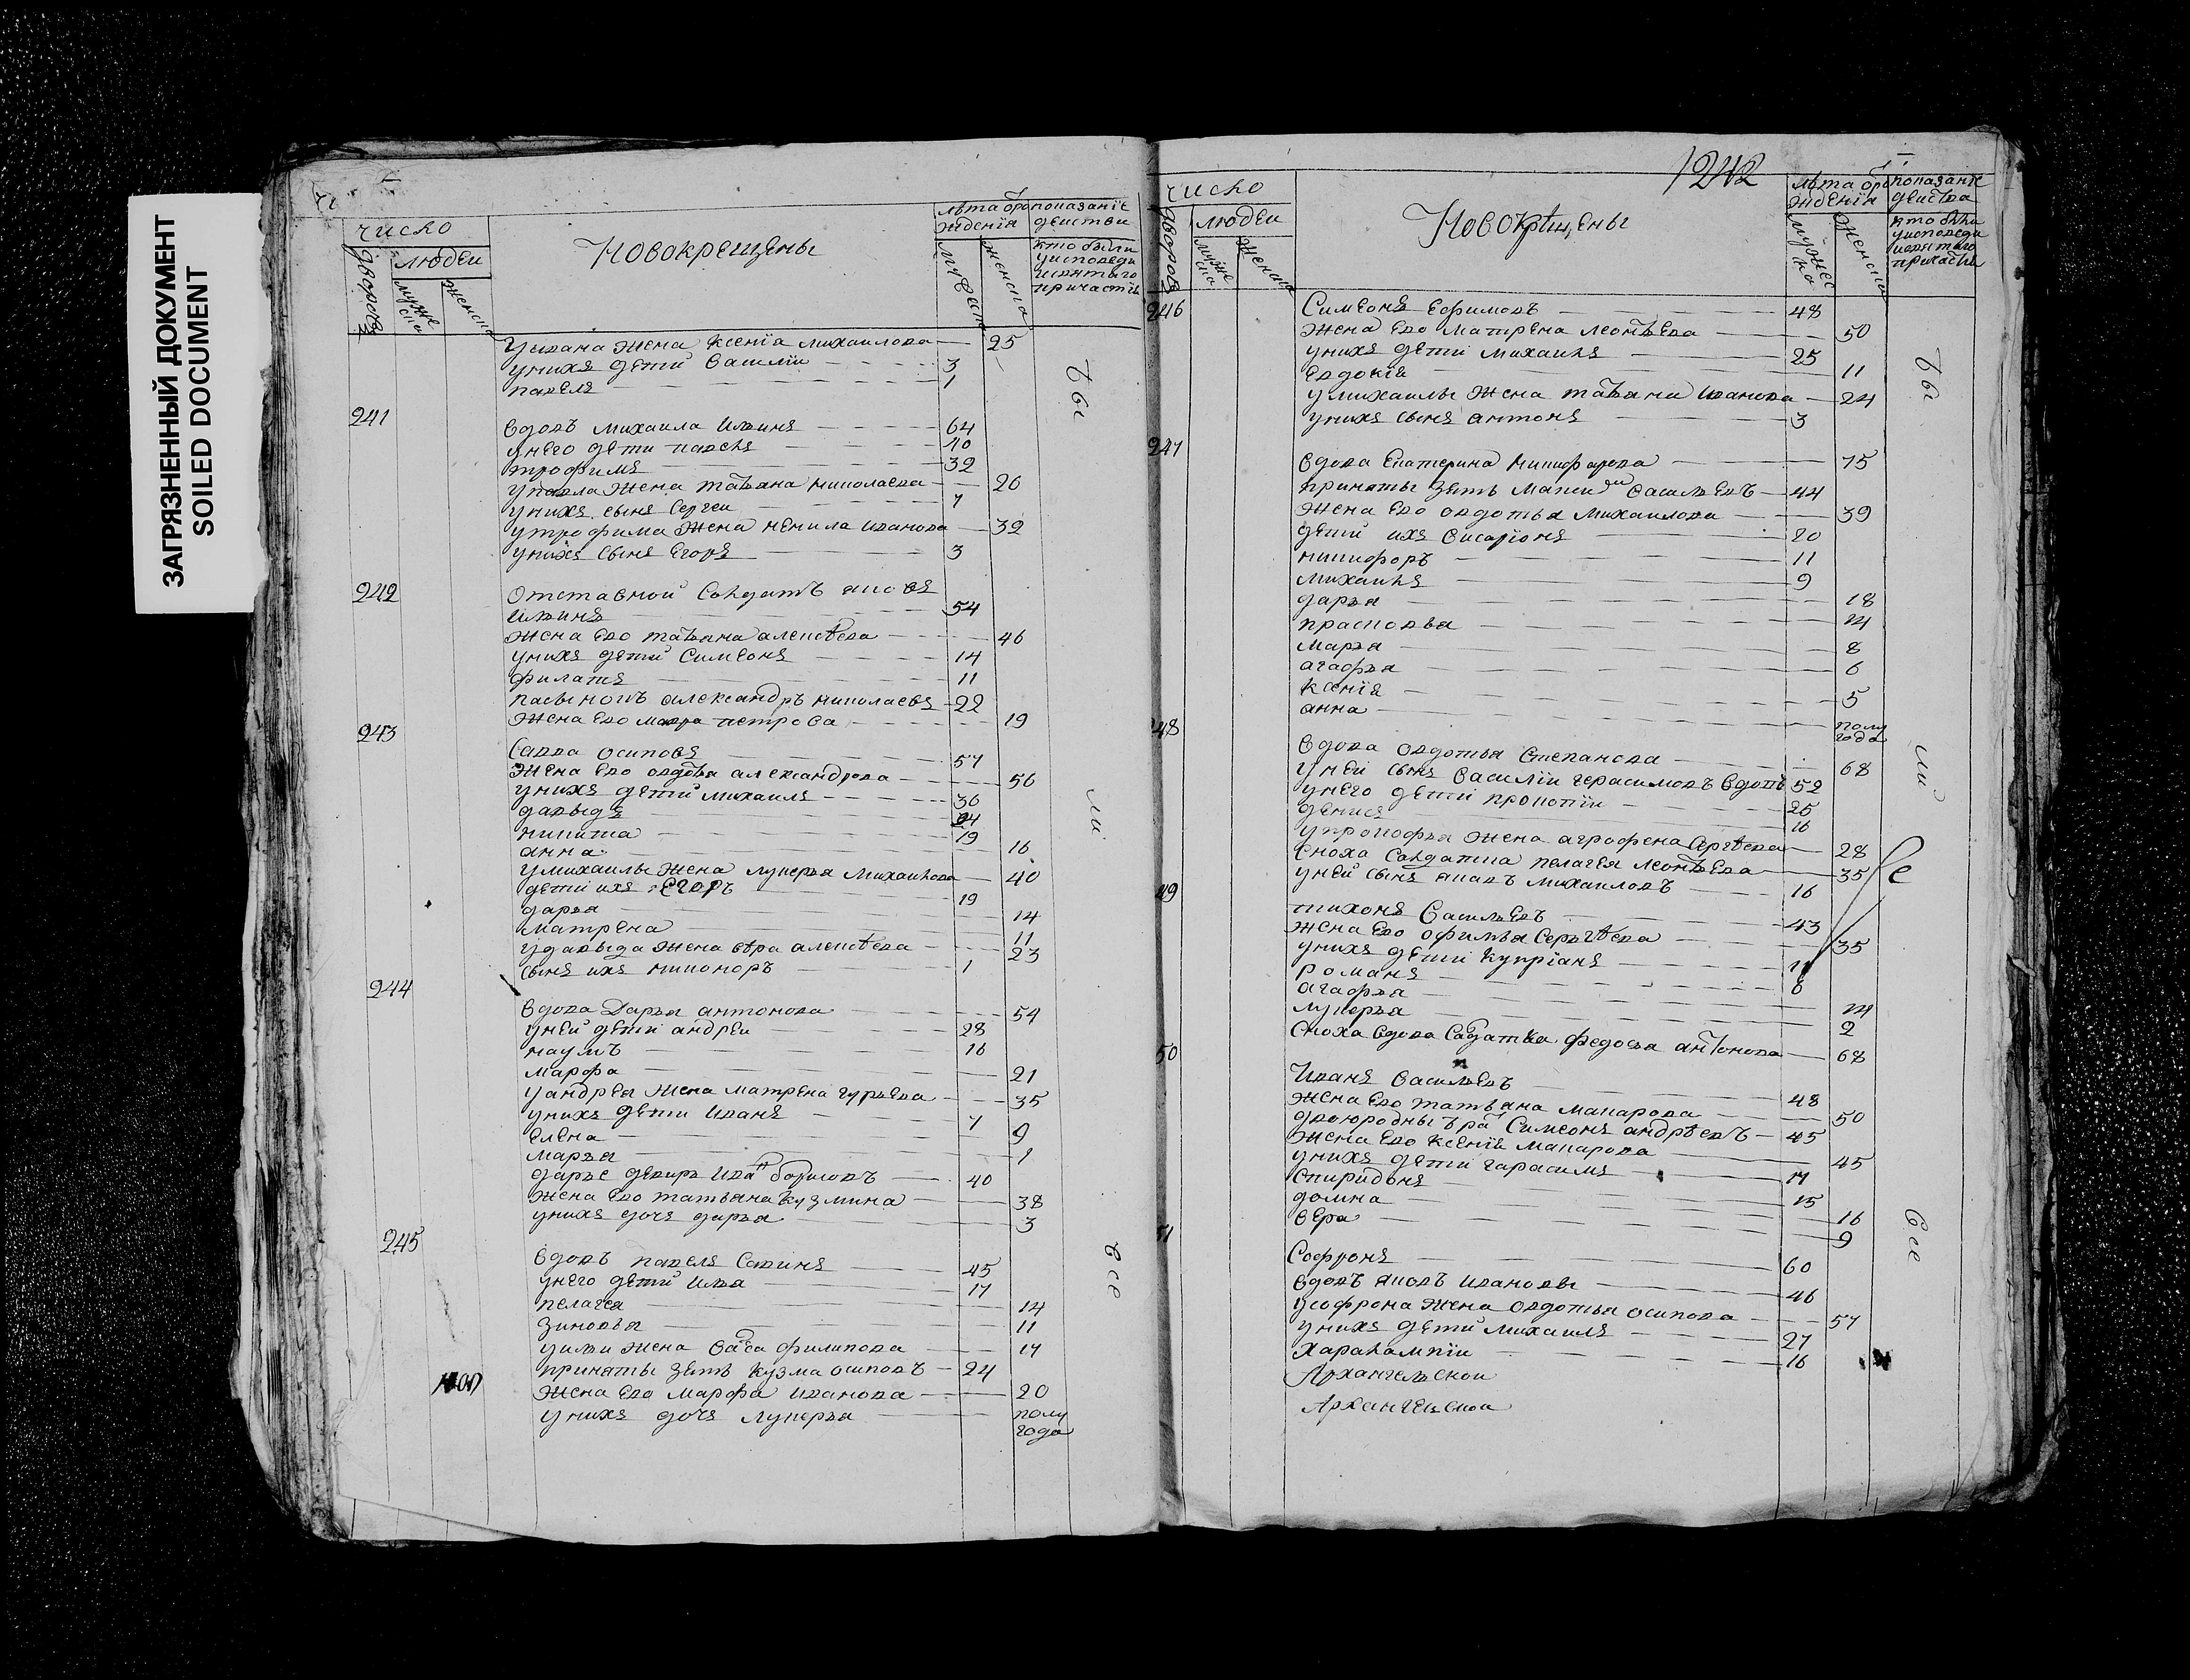 ЗАГРЯЗНЕННЫЙ ДОКУМЕНТ
SOILED DOCUMENT
число
дворовъ
людеи
мужеска
женска
Новокрещены
лѣта ѿрождения
мужеска
женска
показанїе действи
кто были у исповеди и святаго причастїя
у Ивана жена ксенїа михаилова 25
у нихъ дети василїи 3
павелъ 1
241
вдовъ михаила ильинъ 64
у него дети павелъ 40
трофимъ 32
у павла жена татьяна николаева 26
у нихъ сынъ сергеи 7
у трофима жена ненила иванова 32
у нихъ сынъ егоръ 3
242
отставной солдатъ яковъ
ильинъ 54
жена ево татьяна алексѣева 46
у нихъ дети симеонъ 14
филатъ 11
пасынокъ александръ николаевъ 22
жена ево мавра петрова 19
243
савва осиповъ 57
жена ево авдотья александрова 56
у нихъ дети михаилъ 36
давыдъ 24
никита 19
анна 16
у михаилы жена лукерья михаилова 40
дети ихъ егоръ 19
дарья 14
матрена 11
у давыда жена вера алексѣева 23
сынъ ихъ никоноръ 1
244
вдова Дарья антонова 54
у неи дети андреи 28
наумъ 16
марфа 21
у андрея жена матрена гурьева 35
у нихъ дети иванъ 7
елена 9
марья 1
дарье деверь иванъ борисовъ 40
жена ево татьяна кузмина 38
у нихъ дочь дарья 3
245
вдовъ павелъ савинъ 45
у него дети илья 17
пелагея 14
зиновья 11
у ильи жена васса филипова 17
приняты зять кузма осиповъ 24
жена ево марфа иванова 20
у нихъ дочь лукерья полугода
бы
ли
все
1242
число
дворовъ
людеи
мужеска
женска
Новокрѣщены
лѣта ѿрождения
мужеска
женска
показанїе действа
кто были у исповеди и святаго причастїя
246
Симеонъ ефимовъ 48
жена ево матрена леонтьева 50
у нихъ дети михаилъ 25
евдокїя 11
у михаилы жена татьяна иванова 24
у нихъ сынъ антонъ 3
247
вдова екатерина никифорова 75
приняты зять василъевъ 44
жена ево авдотья михаилова 39
дети ихъ висарїонъ 20
никифоръ 11
михаилъ 9
дарья 18
прасковья 14
марья 8
агафья 6
ксенїя 5
анна полугода
48
вдова авдотья степанова 68
у неи сынъ василїи герасимовъ вдовъ 52
у него дети прокопїи 25
денисъ 16
у прокофья жена агрофена 28
сноха солдатка пелагея леонтьева 35
у неи сынъ яковъ михаиловъ 16
49
тихонъ васильевъ 43
жена ево офимья сергѣева 35
у нихъ дети купрїанъ 11
романъ 8
агафья 14
лукерья 2
сноха вдова салдатка федосья антонова 68
50
Иванъ васильевъ 48
жена ево татьяна макарова 50
двоюродны братъ симеонъ андрѣевъ 45
жена ево ксенїя макарова 45
у нихъ дети гарасимъ 17
спиридонъ 15
домна 16
вера 9
51
Софронъ 60
вдовъ яковъ ивановы 46
у софрона жена авдотья осипова 57
у нихъ дети михаилъ 27
харалампїи 16
Архангельскои
Архангельскои
бы
ли
все